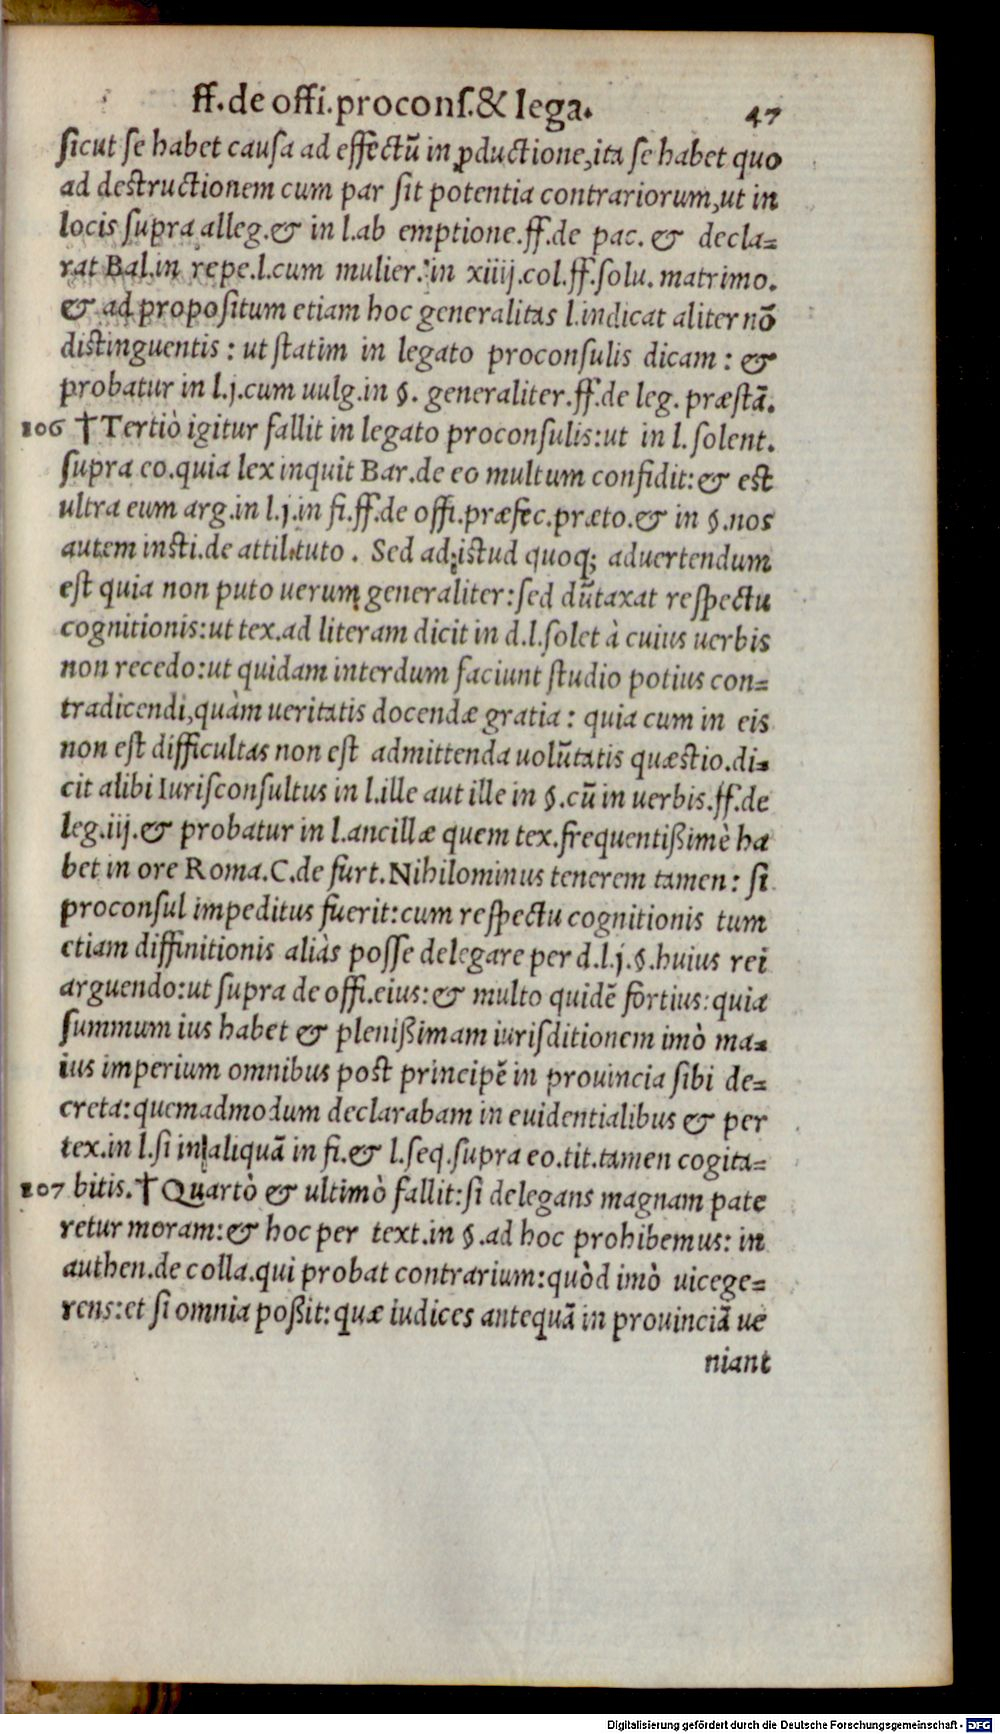 ff. de offi. procons. & lega.
47
sicut se habet causa ad effectũ in ꝓductione, ita se habet quo
ad destructionem cum par sit potentia contrariorum, ut in
locis supra alleg. & in l. ab emptione. ff. de pac. & decla-
rat Bal. in repe. l. cum mulier. in xiiij. col. ff. solu. matrimo.
& ad propositum etiam hoc generalitas l. indicat aliter nõ
distinguentis : ut statim in legato proconsulis dicam : &
probatur in l. j. cum uulg. in §. generaliter. ff. de leg. præstã.
106 †Tertiò igitur fallit in legato proconsulis: ut in l. solent.
supra eo. quia lex inquit Bar. de eo multum confidit: & est
ultra eum arg. in l. j. in fi. ff. de offi. præfec. præto. & in §. nos
autem insti. de attil. tuto . Sed ad istud quoq; aduertendum
est quia non puto uerum generaliter: sed dũtaxat respectu
cognitionis: ut tex. ad literam dicit in d. l. solet à cuius uerbis
non recedo: ut quidam interdum faciunt studio potius con-
tradicendi, quàm ueritatis docendæ gratia : quia cum in eis
non est difficultas non est admittenda uolũtatis quæstio. di-
cit alibi Iurisconsultus in l. ille aut ille in §. cũ in uerbis. ff. de
leg. iij. & probatur in l. ancillæ quem tex. frequentißimè ha
bet in ore Roma. C. de furt. Nihilominus tenerem tamen : si
proconsul impeditus fuerit: cum respectu cognitionis tum
etiam diffinitionis aliàs posse delegare per d. l. j. §. huius rei
arguendo: ut supra de offi. eius: & multo quidẽ fortius: quia
summum ius habet & plenißimam iurisditionem imò ma-
ius imperium omnibus post principẽ in prouincia sibi de-
creta: quemadmodum declarabam in euidentialibus & per
tex. in l. si in aliquã in fi. & l. seq. supra eo. tit. tamen cogita-
107 bitis. † Quartò & ultimò fallit: si delegans magnam pate
retur moram: & hoc per text. in §. ad hoc prohibemus: in
authen. de colla. qui probat contrarium: quòd imò uicege-
rens: et si omnia poßit: quæ iudices antequã in prouinciã ue
niant
Digitalisierung gefördert durch die Deutsche Forschungsgemeinschaft - DFG